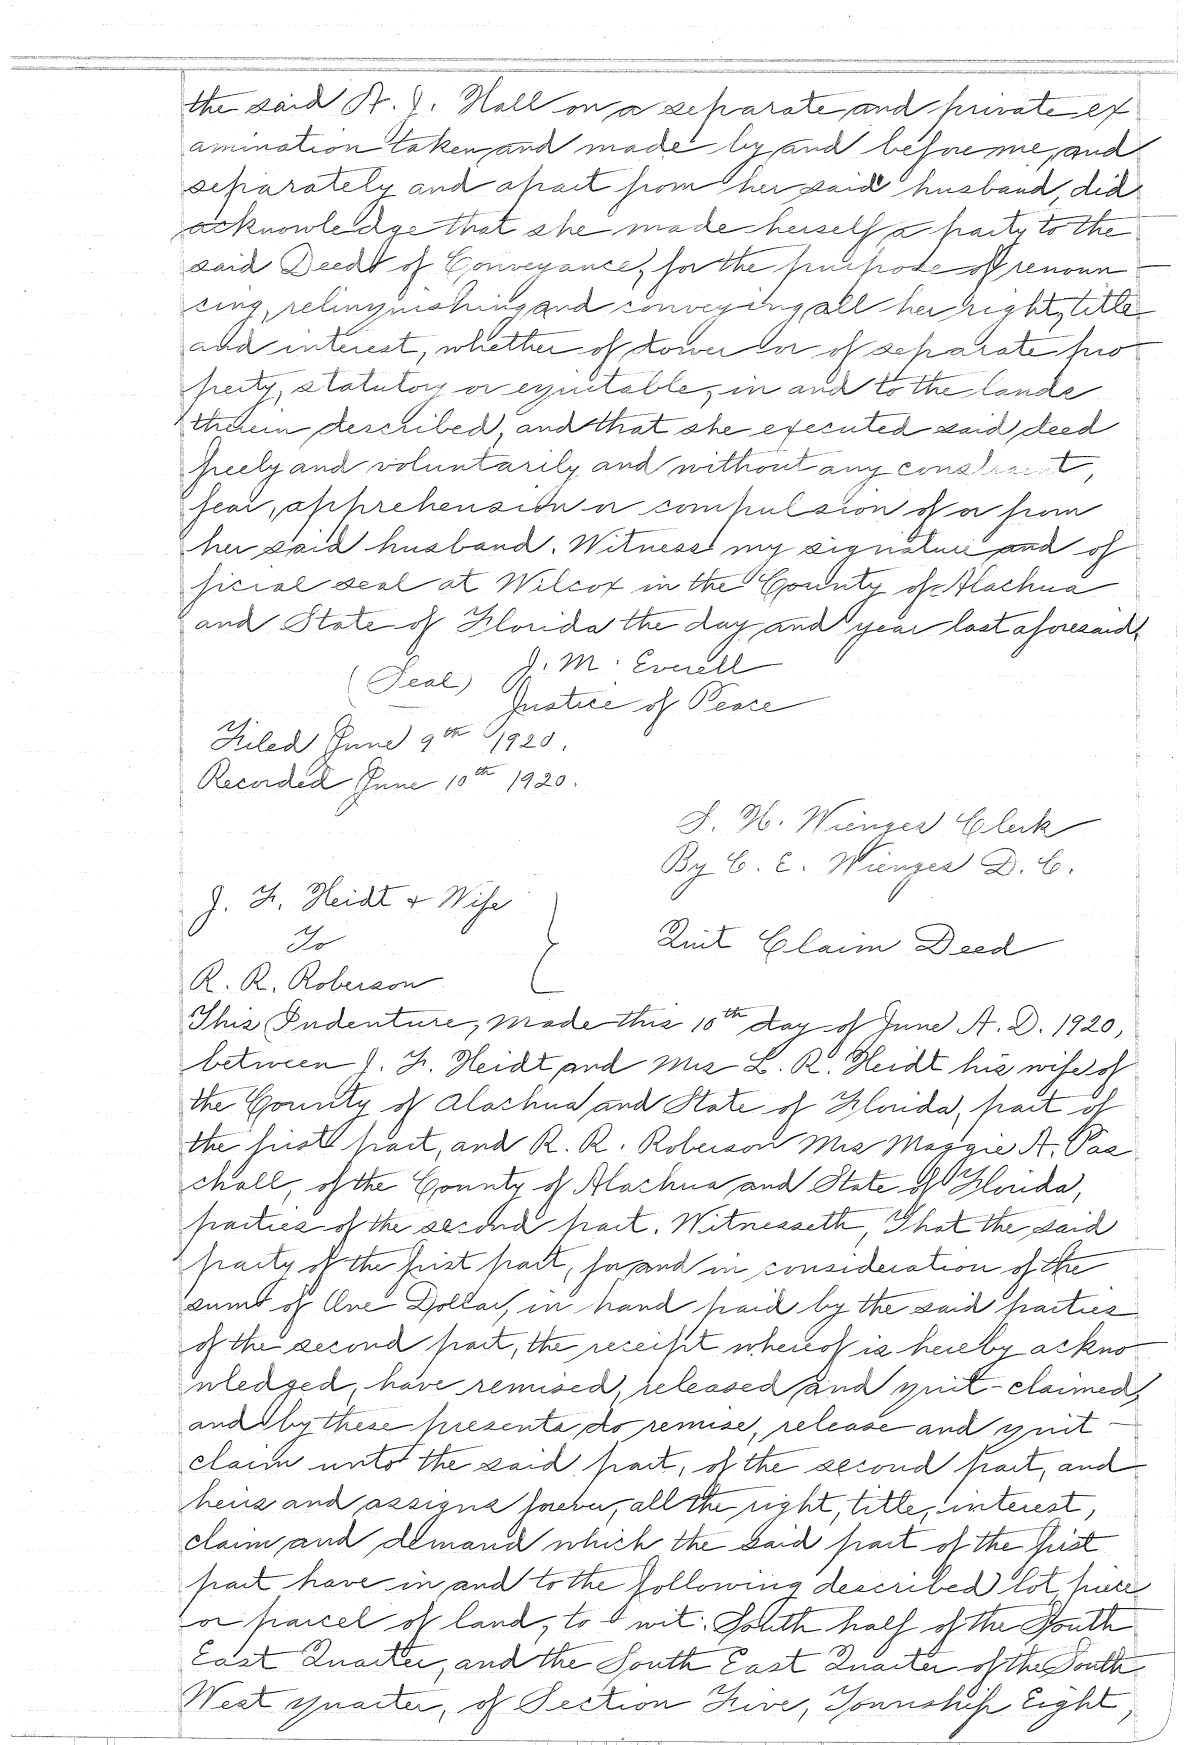 the said A. J. Hall on a separate and private ex
amination taken and made by and before me, and
separately and apart from her said husband, did
acknowledge that she made herself a party to the
said Deed of Conveyance, for the purpose of renoun
cing, relinquishing and conveying all her right, title
and interest, whether of dower or of separate pro
perty, statutory or equitable, in and to the lands
therein described, and that she executed said deed
freely and voluntarily and without any constraint,
fear, apprehension or compulsion of or from
her said husband. Witness my signature and of
ficial seal at Wilcox in the County of Alachua
and State of Florida the day and year last aforesaid.
(Seal) J. M. Everell
Justice of Peace
Filed June 9th 1920.
Recorded June 10th 1920.
S. H. Wienges Clerk
By C. E. Wienges D. C.
J. F. Heidt + Wife
To
Quit Claim Deed
R. R. Roberson
This Indenture, made this 10th day of June A. D. 1920,
between J. F. Heidt and Mrs L. R. Heidt his wife of
the County of Alachua and State of Florida, part of
the first part, and R. R. Roberson Mrs Maggie A. Pas
chall, of the County of Alachua and State of Florida,
parties of the second part. Witnesseth, That the said
party of the first part, for and in consideration of the
sum of One Dollar, in hand paid by the said parties
of the second part, the receipt whereof is hereby ackno
wledged, have remised, released and quit-claimed,
and by these presents do remise, release and quit-
claim unto the said part, of the second part, and
heirs and assigns forever, all the right, title, interest,
claim and demand which the said part of the first
part have in and to the following described lot, piece
or parcel of land, to wit: South half of the South
East Quarter, and the South East Quarter of the South
West quarter, of Section Five, Township Eight,